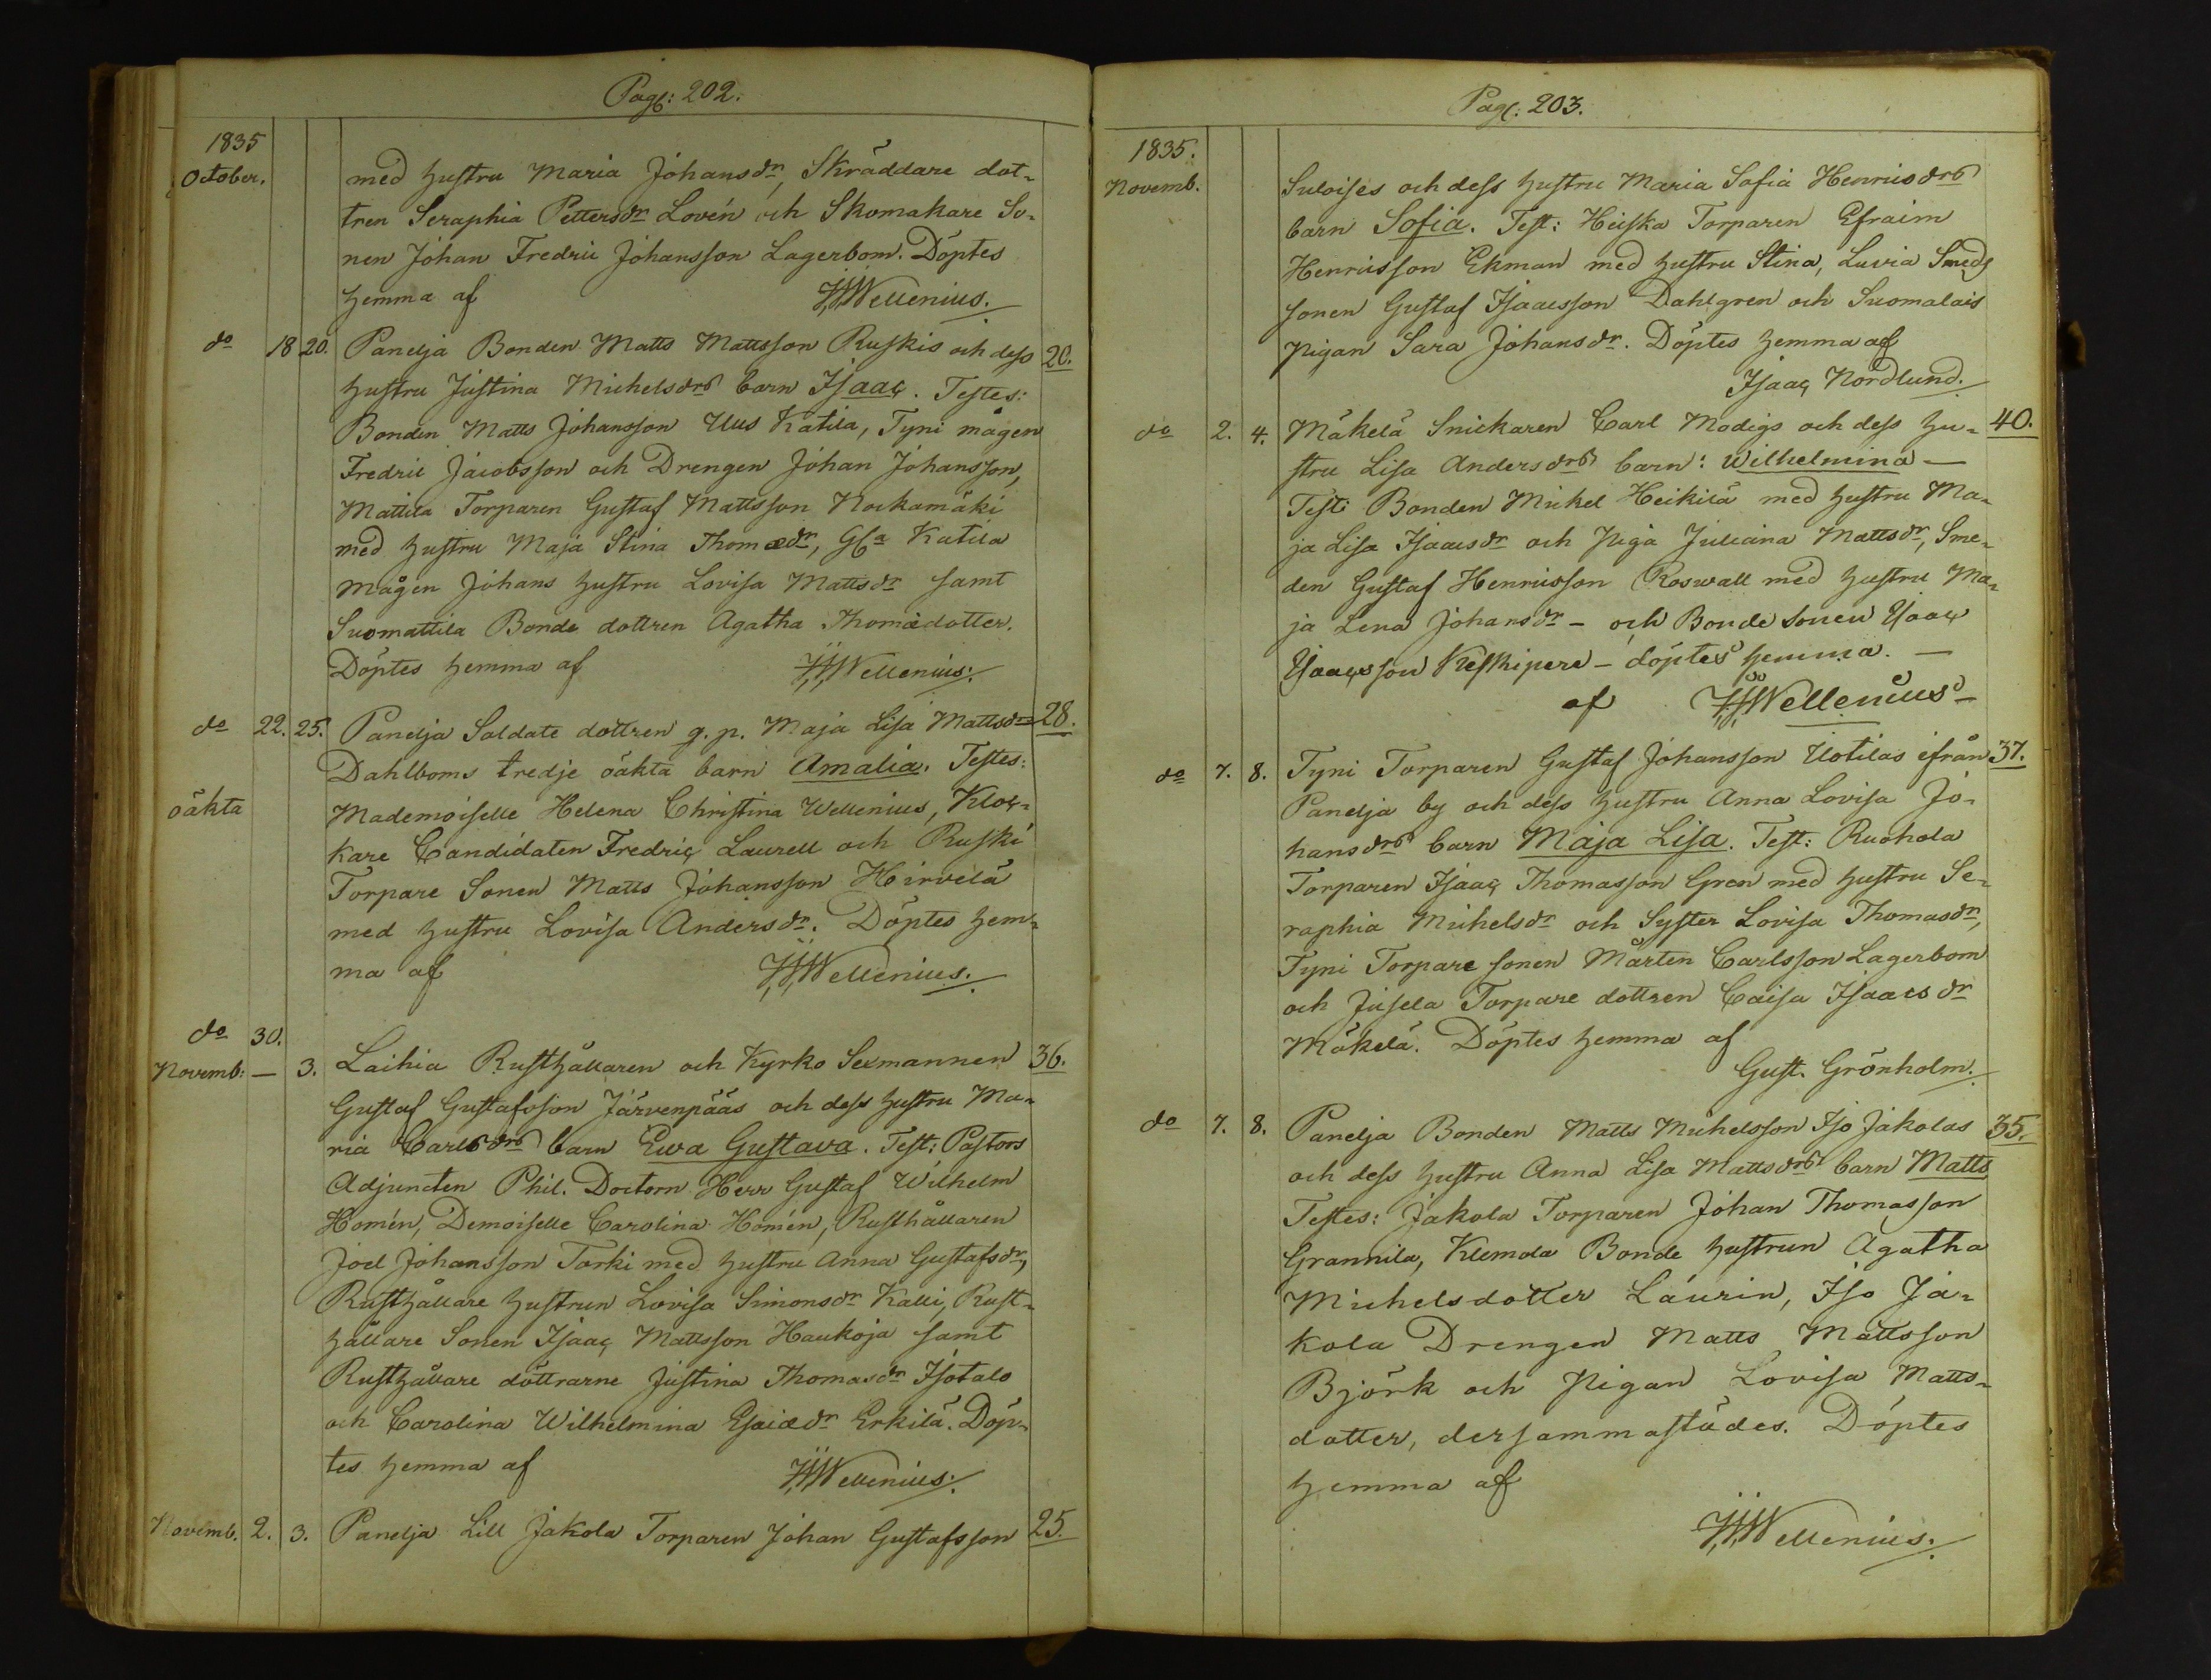 Pag: 202.
1835
October.
med hustru Maria Johansdr, Skräddare dot-
tren Seraphia Pettersdr Lovén och Skomakare So-
nen Johan Fredric Johansson Lagerbom. Döptes
hemma af Wellenius.
do 18 20. Panelja Bonden Matts Mattsson Ruskis och dess 20.
hustru Justina Michelsdrs barn Isaac. Testes:
Bonden Matts Johansson Uus Katila, Tyni mågen
Fredric Jacobsson och Drengen Johan Johansson,
Mattila Torparen Gustaf Mattsson Nockamäki
med hustru Maja Stina Thomædr, Gla Katila
mågen Johans hustru Lovisa Mattsdr samt
Suomattila Bonde dottren Agatha Thomædotter.
Döptes hemma af Wellenius.
do 22. 25. Panelja Soldate dottren g. p. Maja Lisa Mattsdr 28.
Dahlboms tredje oäkta barn Amalia. Testes:
oäkta Mademoiselle Helena Christina Wellenius, Kloc-
kare Candidaten Fredric Laurell och Ruski
Torpare Sonen Matts Johansson Hirvelä
med hustru Lovisa Andersdr. Döptes hem-
ma af Wellenius.
do 30.
Novemb: — 3. Laihia Rusthållaren och Kyrko Sexmannen 36.
Gustaf Gustafsson Järvenpääs och dess hustru Ma-
ria Carlsdrs barn Ewa Gustava. Test: Pastors
Adjuncten Phil. Doctorn Herr Gustaf Wilhelm
Homén, Demoiselle Carolina Homén, Rusthållaren
Joel Johansson Torki med hustru Anna Gustafsdr,
Rusthållare hustrun Lovisa Simonsdr Kalli, Rust-
hållare Sonen Isaac Mattsson Haukoja samt
Rusthållare döttrarne Justina Thomasdr Isotalo
och Carolina Wilhelmina Esaiædr Erkilä. Döp-
tes hemma af Wellenius.
Novemb. 2. 3. Panelja Lill Jakola Torparen Johan Gustafsson 25.
Pag: 203.
1835.
Novemb.
Suloises och dess hustru Maria Sofia Henricsdrs
barn Sofia. Test: Heiska Torparen Efraim
Henricsson Ekman med hustru Stina, Luvia Smeds
sonen Gustaf Isaacsson Dahlgren och Suomalais
pigan Sara Johansdr. Döptes hemma af
Isaac Nordlund.
do 2. 4. Mäkelä Snickaren Carl Modigs och dess hu- 40.
stru Lisa Andersdrs barn: Wilhelmina —
Test: Bonden Mickel Heikilä med hustru Ma-
ja Lisa Isaacsdr och piga Juliana Mattsdr, Sme-
den Gustaf Henricsson Roswall med hustru Ma-
ja Lena Johansdr — och Bonde sonen Isaac
Isaacsson Keskipere — döptes hemma. —
af Wellenius
do 7. 8. Tyni Torparen Gustaf Johansson Uotilas ifrån 37.
Panelja by och dess hustru Anna Lovisa Jo-
hansdrs barn Maja Lisa. Test: Ruohola
Torparen Isaac Thomasson Gren med hustru Se-
raphia Michelsdr och Syster Lovisa Thomasdr,
Tyni Torpare sonen Mårten Carlsson Lagerbom
och Jusela Torpare dottren Caisa Isaacsdr
Mäkelä. Döptes hemma af
Gust. Grönholm.
do 7. 8. Panelja Bonden Matts Michelsson Iso Jakolas 35.
och dess hustru Anna Lisa Mattsdrs barn Matts
Testes: Jakola Torparen Johan Thomasson
Grannila, Klemola Bonde hustrun Agatha
Michelsdotter Laurin, Iso Ja-
kola Drengen Matts Mattsson
Björk och Pigan Lovisa Matts-
dotter, dersammastädes. Döptes
hemma af
Wellenius.